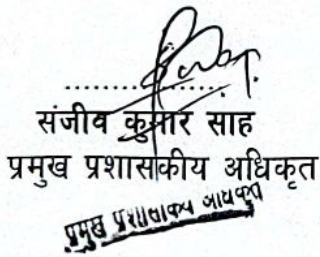 ....................
संजीव कुमार साह
प्रमुख प्रशासकीय अधिकृत
प्रमुख प्रशासकीय अधिकृत